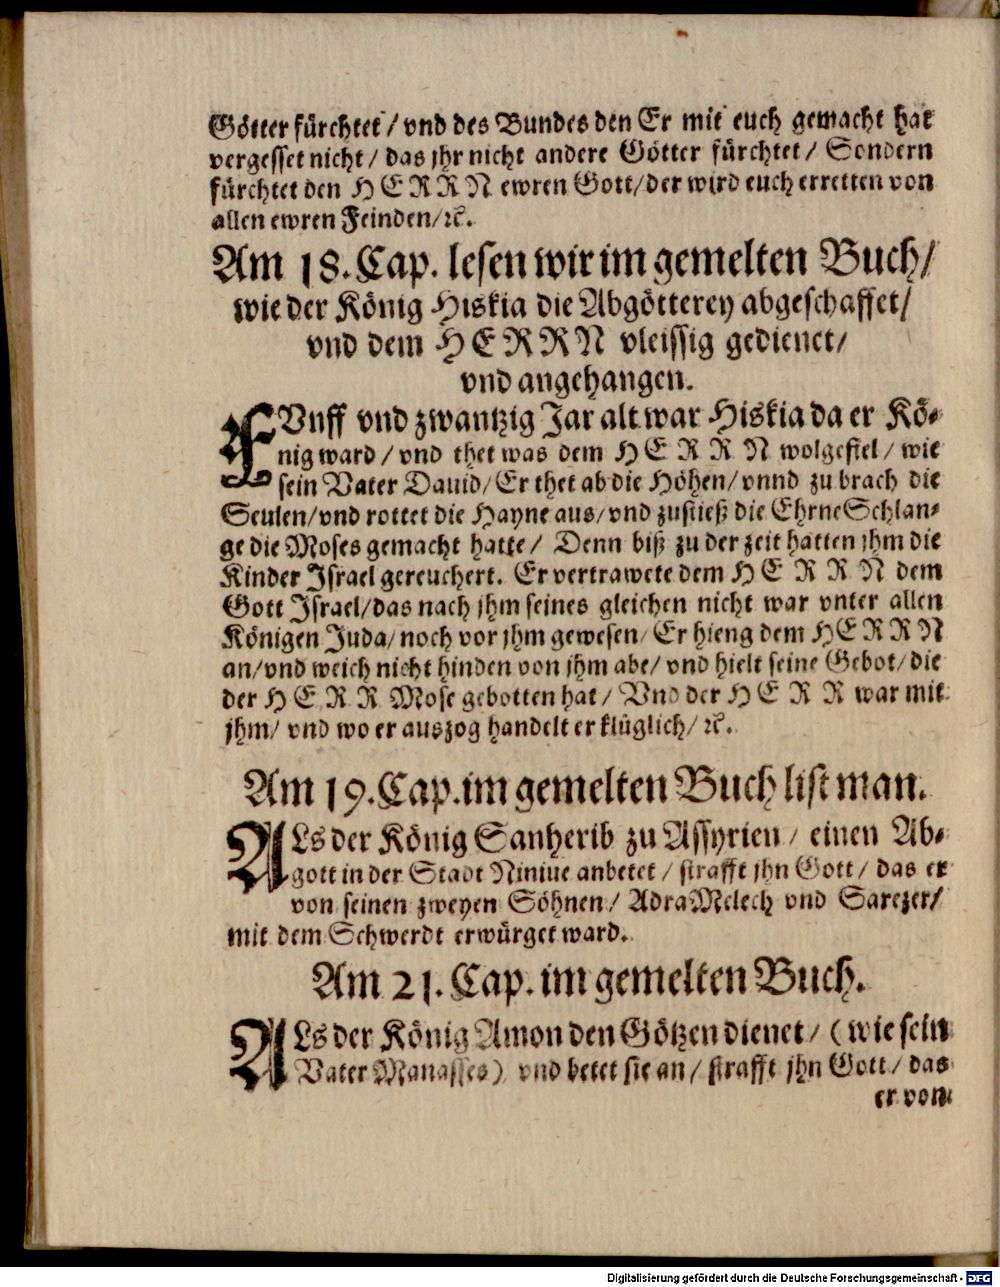 Götter fürchtet / vnd des Bundes den Er mit euch gemacht hat
vergesset nicht / das jhr nicht andere Götter fürchtet / Sondern
fürchtet den HERRN ewren Gott / der wird euch erretten von
allen ewren Feinden / ꝛc.
Am 18. Cap. lesen wir im gemelten Buch /
wie der König Hiskia die Abgötterey abgeschaffet /
vnd dem HERRN vleissig gedienet /
vnd angehangen.
FVnff vnd zwantzig Jar alt war Hiskia da er Kö-
nig ward / vnd thet was dem HERRN wolgefiel / wie
sein Vater Dauid / Er thet ab die Höhen / vnnd zu brach die
Seulen / vnd rottet die Hayne aus / vnd zustieß die Ehrne Schlan-
ge die Moses gemacht hatte / Denn biß zu der zeit hatten jhm die
Kinder Israel gereuchert. Er vertrawete dem HERRN dem
Gott Israel / das nach jhm seines gleichen nicht war vnter allen
Königen Juda / noch vor jhm gewesen / Er hieng dem HERRN
an / vnd weich nicht hinden von jhm abe / vnd hielt seine Gebot / die
der HERR Mose gebotten hat / Vnd der HERR war mit
jhm / vnd wo er auszog handelt er klüglich / ꝛc.
Am 19. Cap. im gemelten Buch list man.
ALs der König Sanherib zu Assyrien / einen Ab-
gott in der Stadt Niniue anbetet / strafft jhn Gott / das er
von seinen zweyen Söhnen / AdraMelech vnd Sarezer /
mit dem Schwerdt erwürget ward.
Am 21. Cap. im gemelten Buch.
ALs der König Amon den Götzen dienet / (wie sein
Vater Manasses) vnd betet sie an / strafft jhn Gott / das
er von
Digitalisierung gefördert durch die Deutsche Forschungsgemeinschaft - DFG